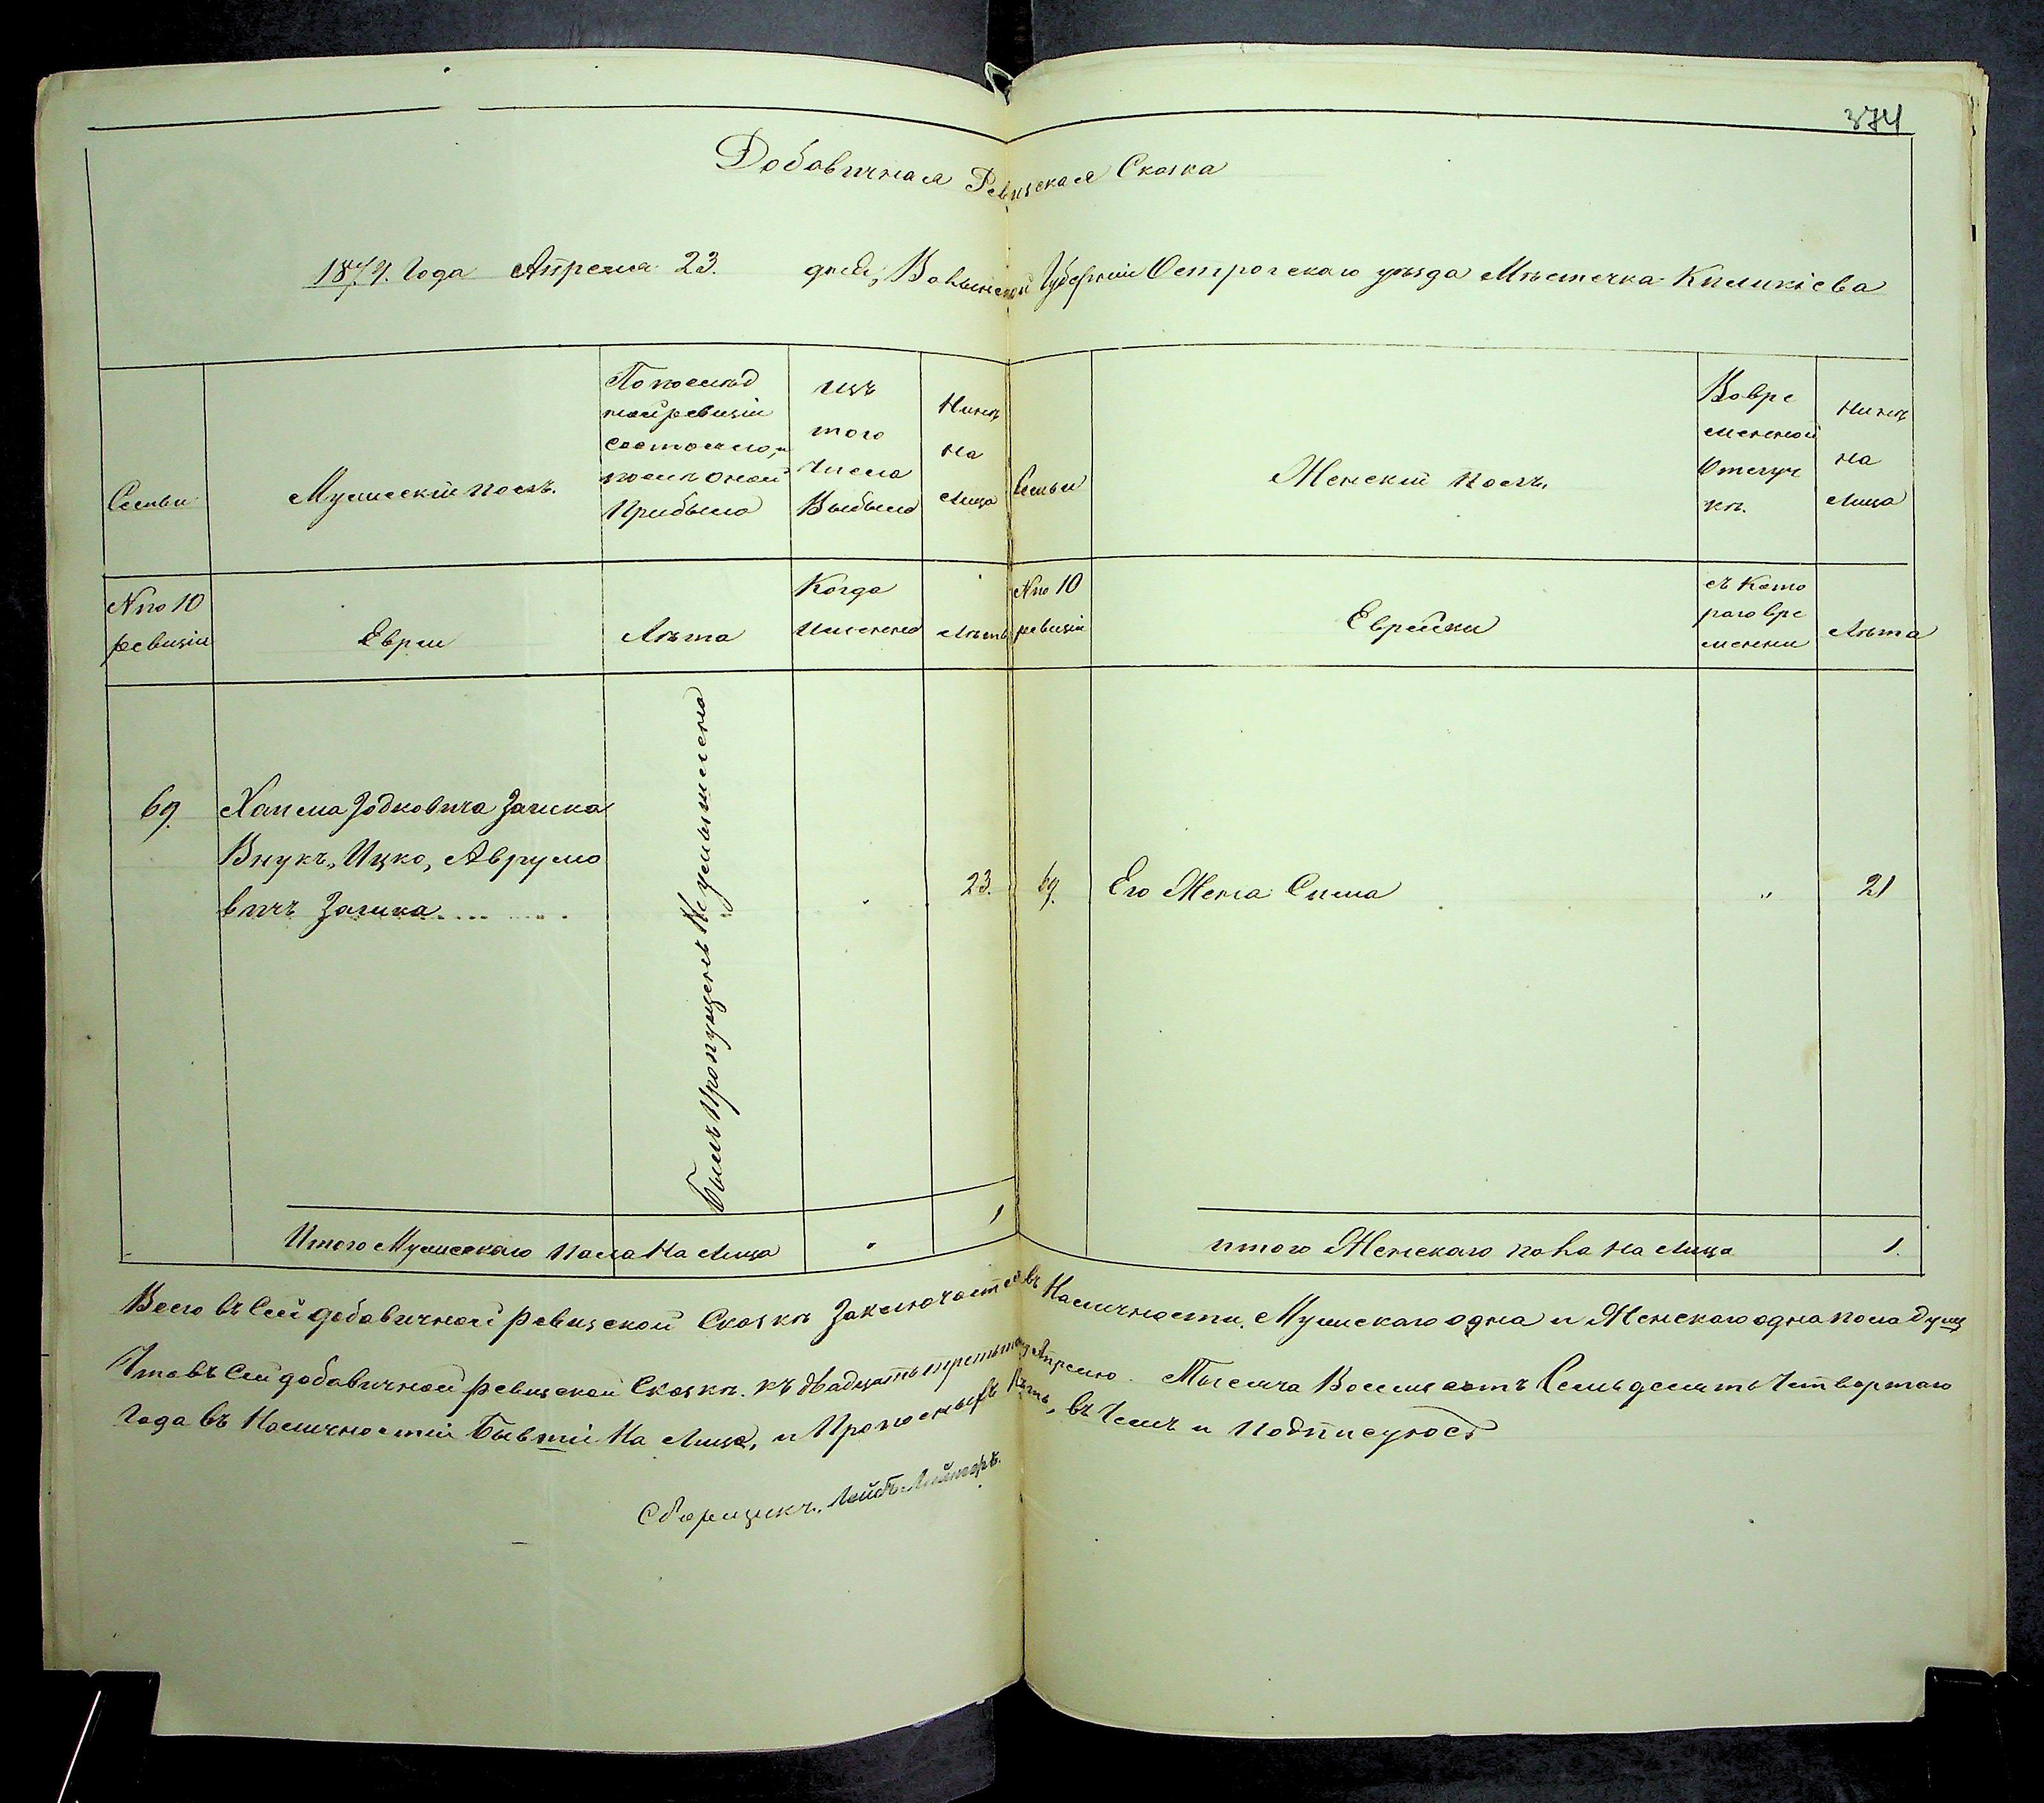 374
Добавичная Ревизская Сказка
1874. Года Апреля 23. дня, Волынской Губернии Острогскаго уезда Мѣстечка Киликіева
Семьи
Мужескій полъ.
По послѣд
ней ревизіи
состояло, и
послѣ оной
Прибыло
изъ
того
Числа
Выбыло
Нинѣ
на
Лица
Семьи
Женскій полъ.
Вовре
менной
Отлуч
кѣ.
Нинѣ
на
Лица
N по 10
ревизіи
Евреи
Лѣта
Когда
Именно
Лѣтъ
N по 10
ревизіи
Еврейки
съ Кото
раго вре
менни
Лѣта
69. Хаима Зодковича Зачика
Внукъ, Ицко, Аврумо
вичъ Зачика
Былъ пропущенъ Неумышлено
23.
69. Его Жена Сима " 21
Итого Мужескаго пола На Лица " 1
итого Женскаго пола На Лица 1.
Всего въ Сей добавичной ревизской Сказкѣ Заключается въ Наличности. Мужскаго одна и Женскаго одна пола душ
Что въ Сей добавичной ревизской Сказкѣ. къ двадцать третьему Апрелю. Тысяча Восемсотъ Семьдесять Четвертаго
Года въ Наличностіи Бывшіи На Лица, и Прописныхъ Нѣтъ, въ Чемъ и Подписуюсъ
Сборщикъ, Лейбъ